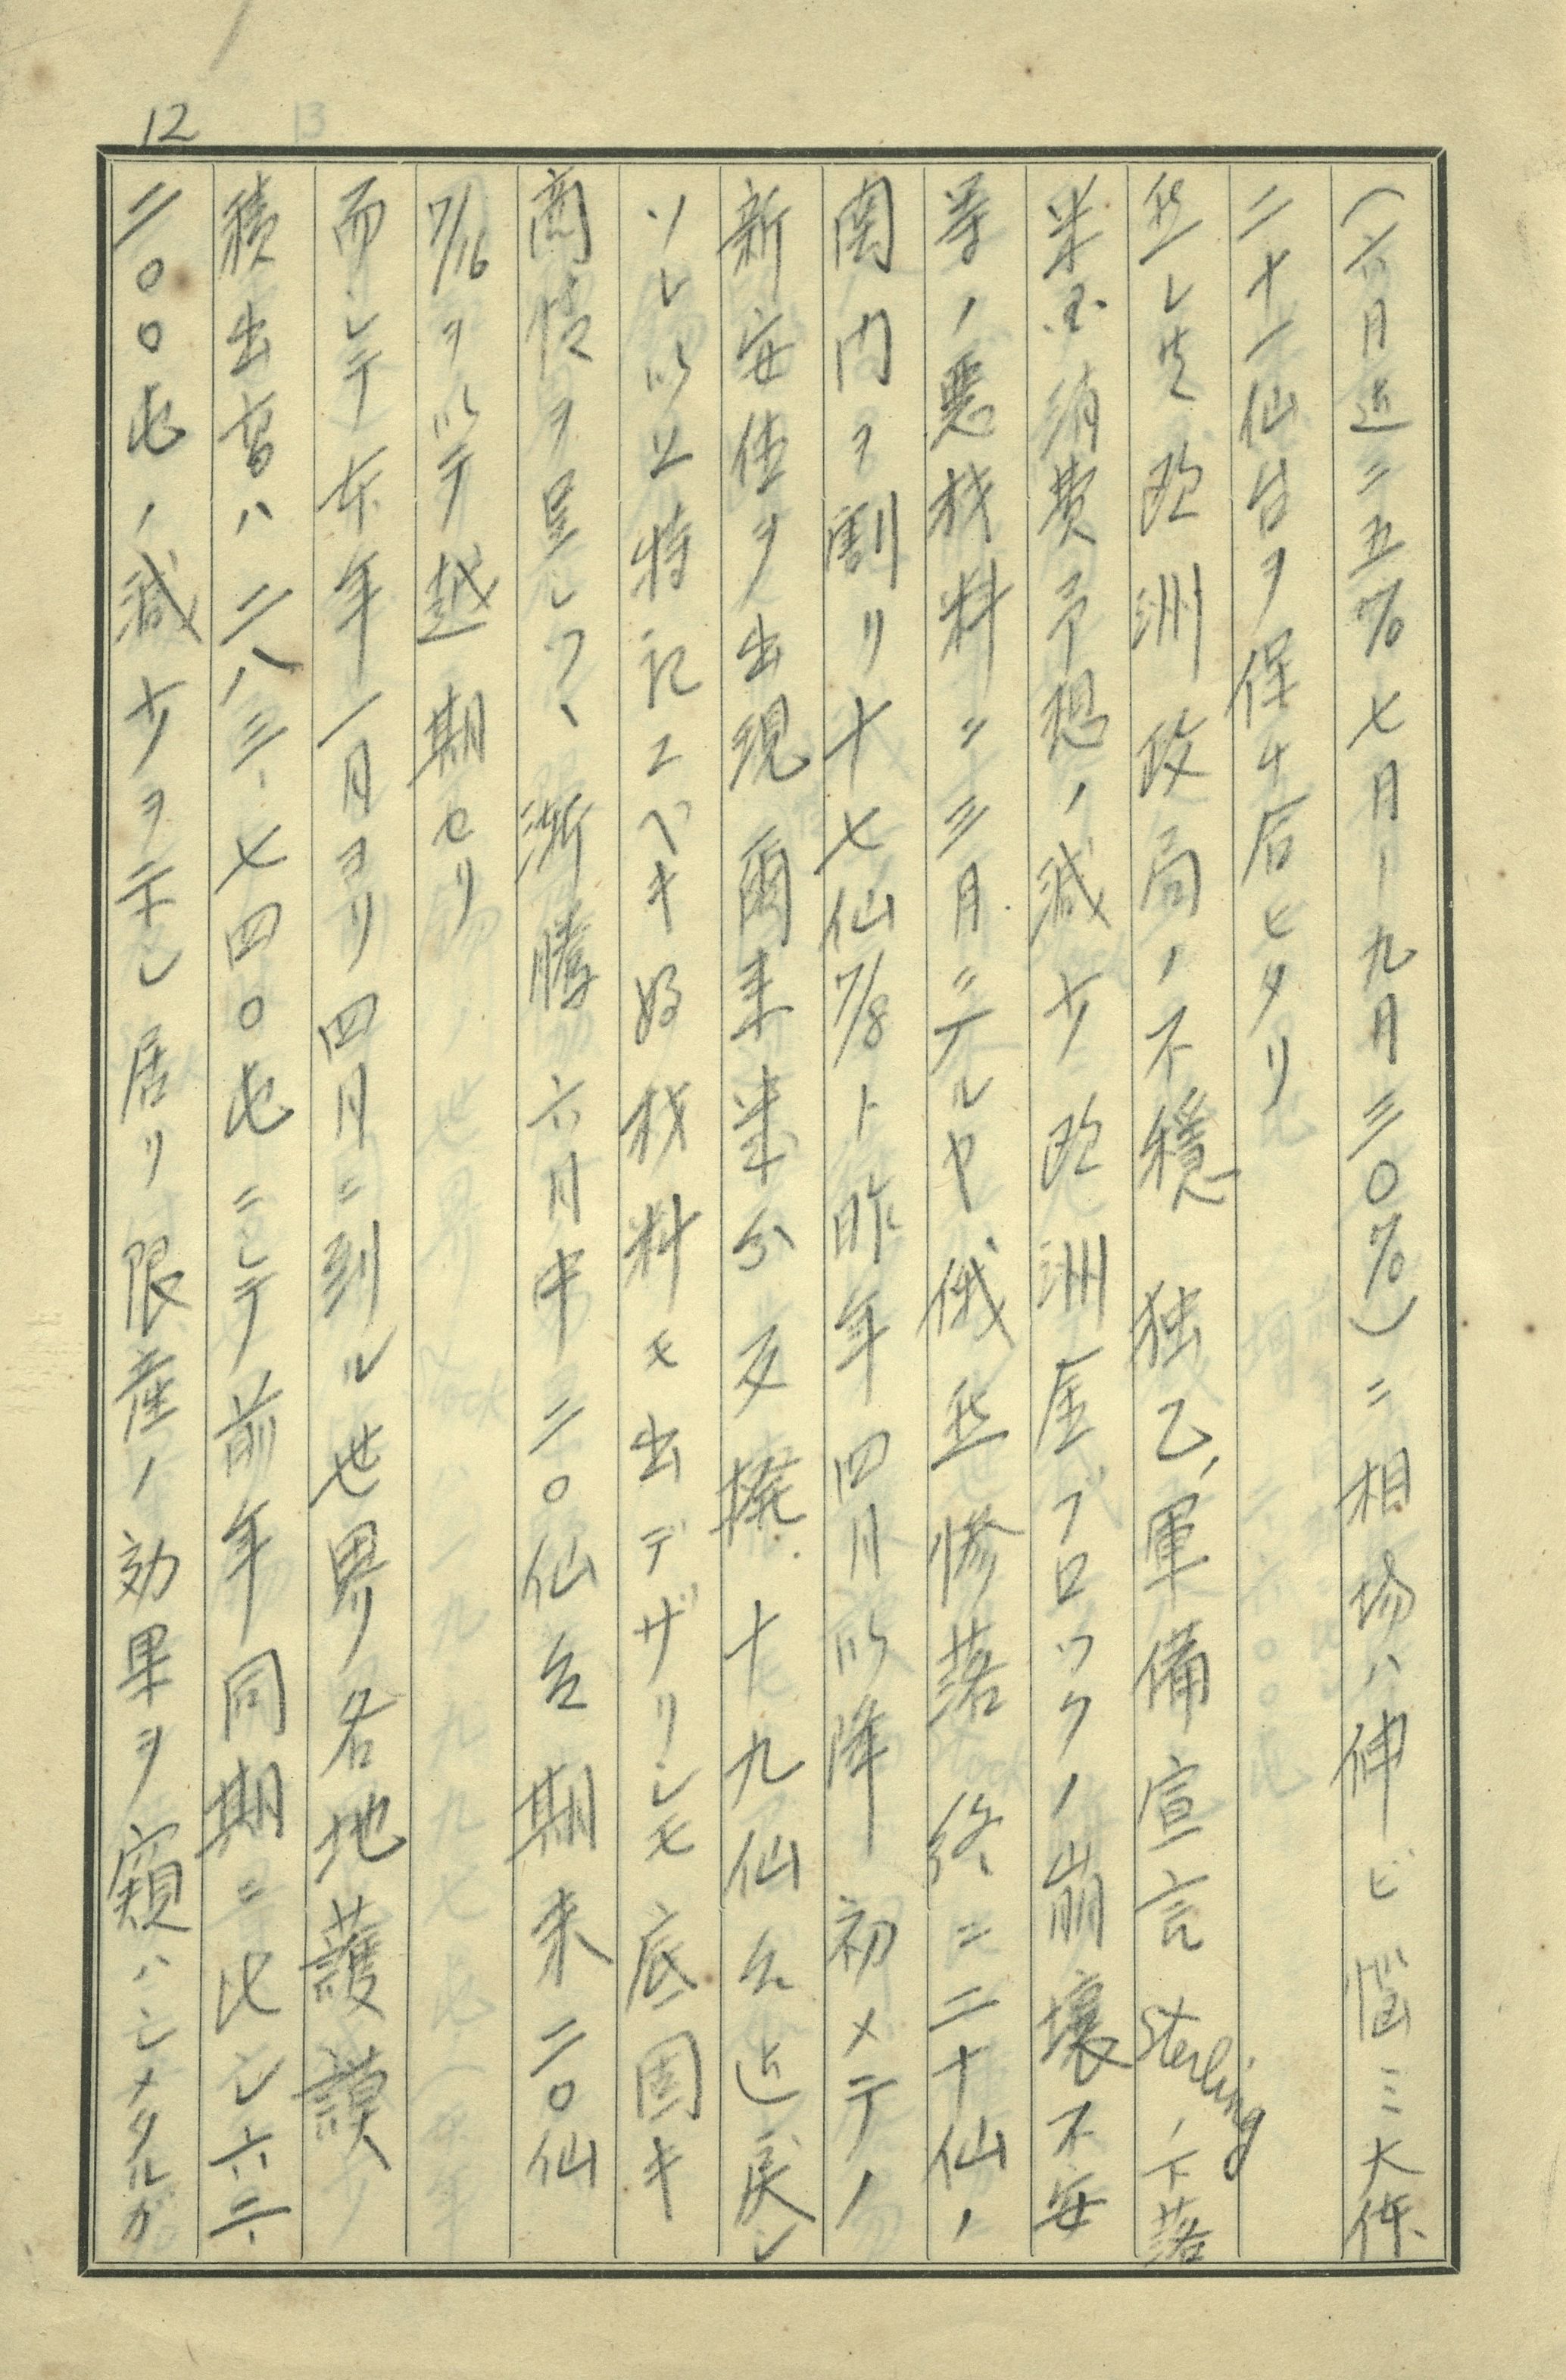 12
(六月迄二五% 七月ー九月三〇%)ニ相場ハ伸ビ悩ミ大体
二十一仙台ヲ保チ居ヒタリ
然レ共 欧洲政局ノ不穏 独乙ノ軍備宣言 Sterlingノ下落
米国消費予想ノ減少 欧洲金ブロックノ崩壊不安
等ノ悪材料ニ三月ニ入ルヤ俄然惨落 終ニ二十仙ノ
関門ヲ割リ十七仙7/8ト昨年四月以降 初メテノ
新安値ヲ出現 爾来 幾分反撥 十九仙台迄戻シ
ソレ以上特記スベキ好材料モ出デザリシモ底固キ
商情ヲ呈シツヽ 漸騰 六月中二〇仙台 期末二〇仙
7/16ヲ以テ越期セリ
而シテ本年一月ヨリ四月ニ到ル世界各地護謨
積出高ハ二八三、七四〇屯ニシテ前年同期ニ比シ六二、
二〇〇屯ノ減少ヲ示シ居リ 限産ノ効果ヲ窺ハシメタルガ